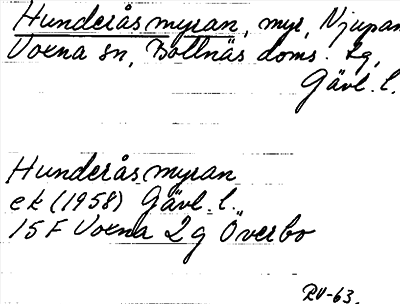 Hunderåsmyran, myr, Njupan
Voxna sn, Bollnäs doms. 2g,
Gävl. l.
Hunderåsmyran
ek (1958) Gävl. l.
15 F Voxna 2g Överbo
RV-63.